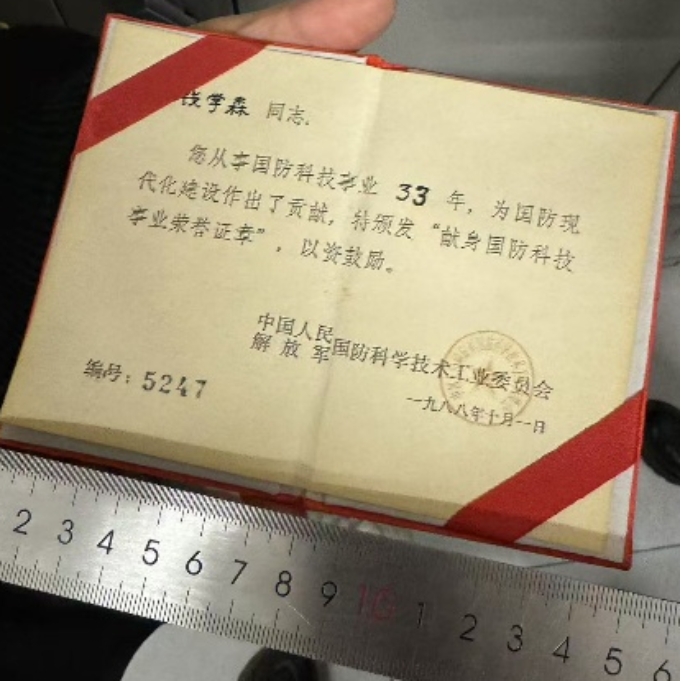 钱学森 同志.
您从事国防科技事业 33 年，为国防现
代化建设作出了贡献，特颁发“献身国防科技
事业荣誉证章”，以资鼓励。
中国人民
解放军国防科学技术工业委员会
编号：5247
一九八八年十月一日
2 3 4 5 6 7 8 9 10 1 2 3 4 5 6